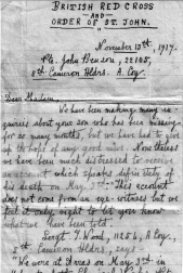 BRITISH RED CROSS
—AND—
ORDER OF ST. JOHN.
November 10th, 1917.
Pte. John Benson, 22105,
Cameron Hldrs. A. Coy.
Dear Madam,
We have been making many in-
quiries about your son who has been missing
for so many months, but we have had to give
up the hope of any good news. Now
we have been much distressed to receive
which speaks definitely of
his death on May 3rd. This account
does not come from an eye-witness but we
feel it only right to let you know
what we have been told.
Sergt. Wood, 11256, A. Coy.,
Cameron Hldrs., says:-
"We were at Arras on May 3rd in